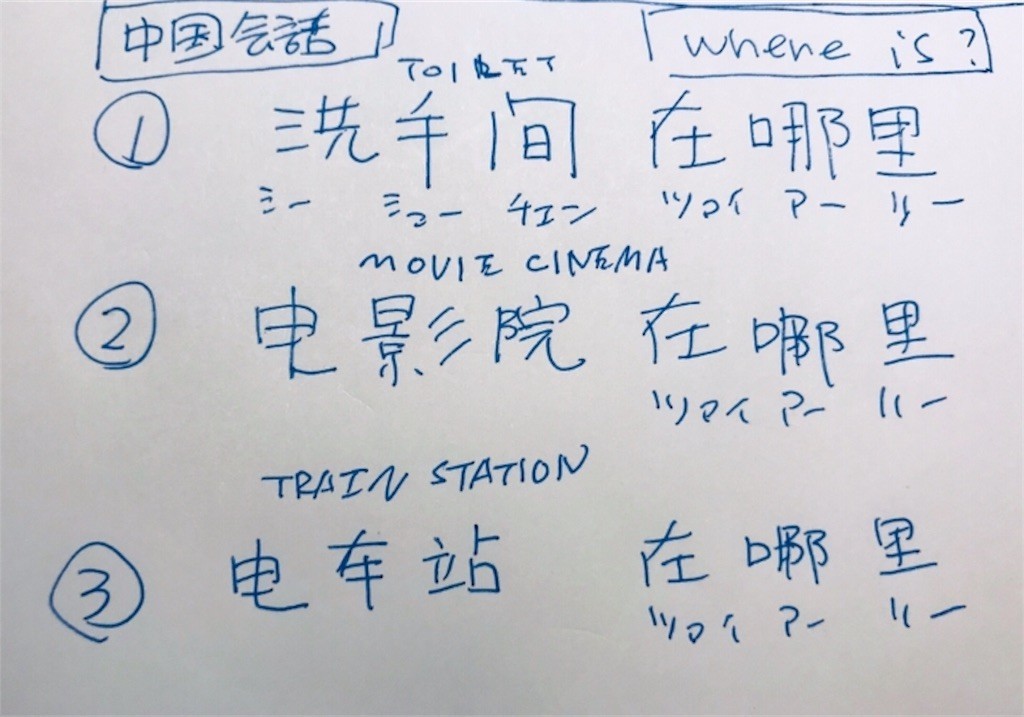 中国会話 where is?
TOILET
① 洗手间 在哪里
シー ショー チェン ツァイ アー リー
MOVIE CINEMA
② 电影院 在哪里
ツァイ アー リー
TRAIN STATION
③ 电车站 在哪里
ツァイ アー リー